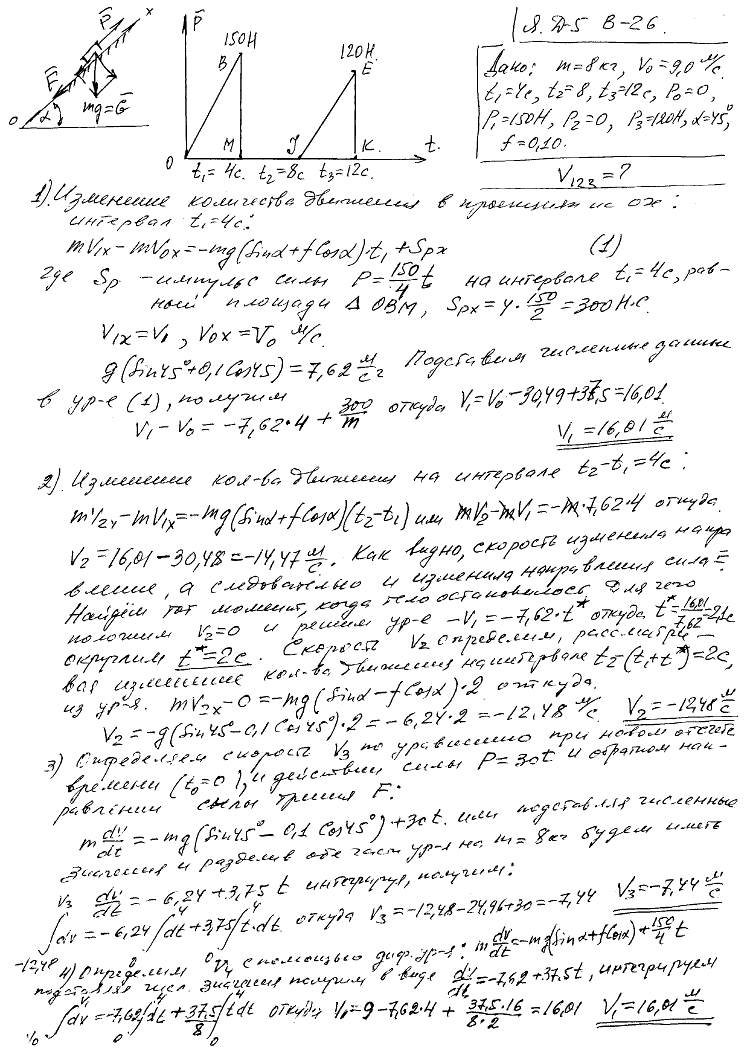 Я. Д-5 В-26.
x
P̄
F̄
mg=Ḡ
α
O
P̄
150Н
120Н.
B
E
O
M
J
K
t.
t₁=4c. t₂=8c t₃=12c.
Дано: m=8кг, V₀=9,0 м/с.
t₁=4c, t₂=8, t₃=12c, P₀=0,
P₁=150Н, P₂=0, P₃=120Н, α=45°,
f=0,10.
V₁₂₃=?
1). Изменение количества движения в проекциях на ох:
интервал t₁=4c:
mV₁ₓ-mV₀ₓ=-mg(Sinα+fCosα)·t₁+Spx (1)
где Sp - импульс силы P=150/4 t на интервале t₁=4c, рав-
ный площади Δ ОВМ, Spx=4·150/2=300Н·с.
V₁ₓ=V₁, V₀ₓ=V₀ м/с.
g(Sin45°+0,1Cos45)=7,62 м/с². Подставим численные данные
в ур-е (1), получим
V₁-V₀=-7,62·4+300/m откуда V₁=V₀-30,49+37,5=16,01
V₁=16,01 м/с
2). Изменение кол-ва движения на интервале t₂-t₁=4c:
mV₂ₓ-mV₁ₓ=-mg(Sinα+fCosα)(t₂-t₁) или mV₂-mV₁=-m·7,62·4 откуда
V₂=16,01-30,48=-14,47 м/с. Как видно, скорость изменила напра
вление, а следовательно и изменила направления сила F̄.
Найдём тот момент, когда тело остановилось. Для чего
положим V₂=0 и решим ур-е -V₁=-7,62·t* откуда t*=16,01/7,62=2,1c
округлим t*=2c. Скорость V₂ определим, рассматри-
вая изменение кол-ва движения на интервале t₂-(t₁+t*)=2c,
из ур-я. mV₂ₓ-0=-mg(Sinα-fCosα)·2 откуда.
V₂=-g(Sin45°-0,1Cos45°)·2=-6,24·2=-12,48 м/с. V₂=-12,48 м/с
3) Определяем скорость V₃ по уравнению при новом отсчете
времени (t₀=0), и действии силы P=30t и обратном нап-
равлении силы трения F:
m dv/dt=-mg(Sin45°-0,1Cos45°)+30t. или подставляя численные
значения и разделив обе части ур-я на m=8кг будем иметь
dv/dt=-6,24+3,75 t интегрируя, получим:
∫dv=-6,24∫dt+3,75∫t·dt. откуда V₃=-12,48-24,96+30=-7,44 V₃=-7,44 м/с
4) Определим V₁ с помощью диф. ур-я: m dv/dt=-mg(Sinα+fCosα)+150/4 t
подставляя числ. значения получим в виде dv/dt=-7,62+37,5t, интегрируем
∫dv=-7,62∫dt+37,5/8∫tdt откуда V₁=9-7,62·4+37,5·16/8·2=16,01 V₁=16,01 м/с